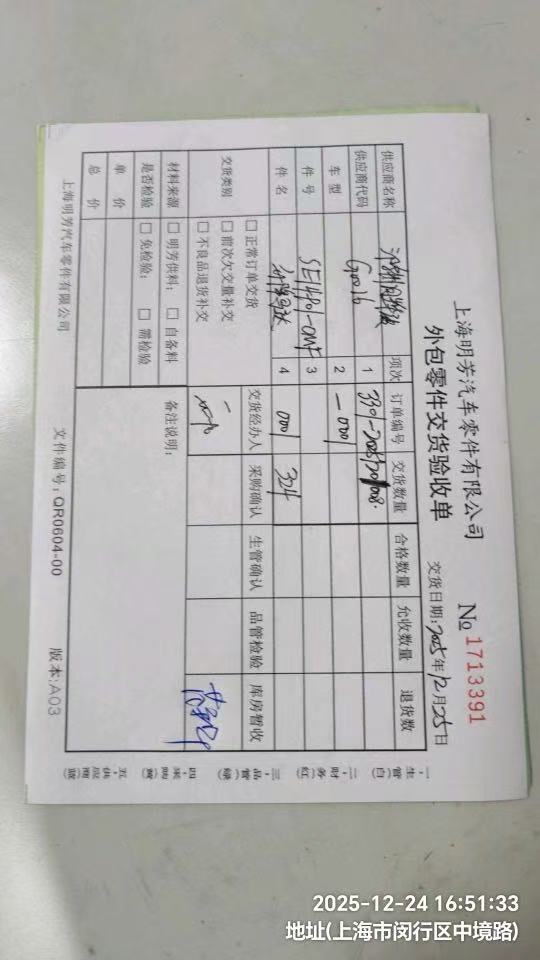 上海明芳汽车零件有限公司
外包零件交货验收单
No 1713391
交货日期:2025年12月25日
供应商名称
供应商代码 G0016
车型
件号
件名
项次 订单编号 交货数量 合格数量 允收数量 退货数
1
2 -0001
3
4 0001 324
交货类别
□ 正常订单交货
□ 前次欠交量补交
□ 不良品退货补交
交货经办人 采购确认 生管确认 品管检验 库房暂收
材料来源 □ 明芳供料: □ 自备料
是否检验 □ 免检验: □ 需检验
单 价
总 价
备注说明:
上海明芳汽车零件有限公司
文件编号: QR0604-00
版本:A03
一.生管(白)
二.财务(红)
三.品管(绿)
四.采购(黄)
五.供应商(蓝)
2025-12-24 16:51:33
地址(上海市闵行区中境路)